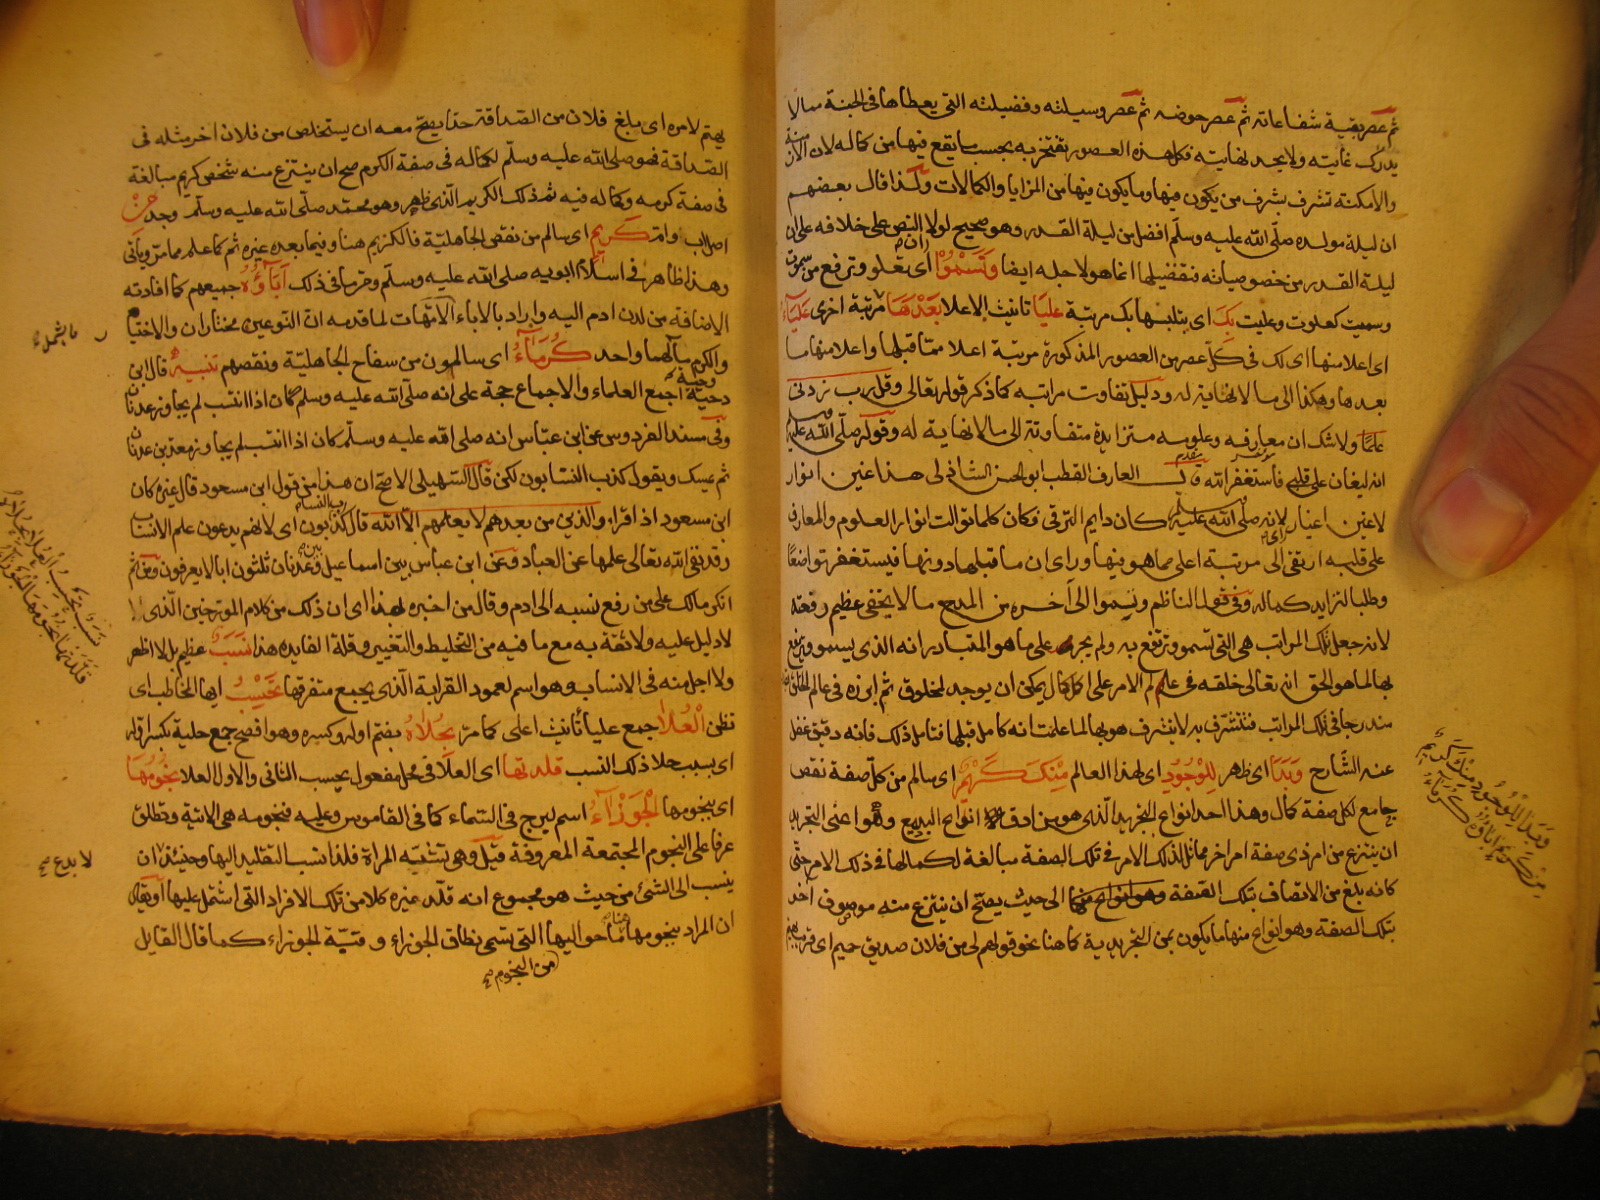 ثم عصر بقية شفاعاته ثم عصر حوضه ثم عصر وسيلته وفضيلته التى يعطاها فى الجنة مما لا
يدرك غايته ولا يحد نهايته فكل هذه العصور تفتخر به بحسب ما يقع فيها من كماله لان الازمنة
والامكنة تشرف بشرف من يكون فيها وما يكون فيها من المزايا والكمالات ولذا قال بعضهم
ان ليلة مولده صلى الله عليه وسلم افضل من ليلة القدر وهو صحيح لولا النص على خلافه على ان
ليلة القدر من خصوصياته فتفضيلها انما هو لاجله ايضا وتسموا اى تعلو وترفع من سموت
وسميت كعلوت وعليت بك اى بتلبسها بك مرتبة عليا تانيث الاعلا بعدها مرتبة اخرى علياء
اى اعلا منها اى لك فى كل عصر من العصور المذكورة مرتبة اعلا مما قبلها واعلا منها ما
بعدها وهكذا الى ما لا نهاية له ودليل تفاوت مراتبه كما ذكر قوله تعالى وقل رب زدنى
علما ولا شك ان معارفه وعلومه متزايدة متفاوتة الى ما لا نهاية له وقوله صلى الله عليه وسلم
انه ليغان على قلبى فاستغفر الله قال العارف القطب ابو الحسن الشاذلى هذا غين انوار
لا غين اغيار لانه صلى الله عليه وسلم كان دايم الترقى فكان كلما توالت انوار العلوم والمعارف
على قلبه ارتقى الى مرتبة اعلى مما هو فيها وراى ان ما قبلها دونها فيستغفر تواضعًا
وطلبا لتزايد كماله وفى قول الناظم وتسموا الى آخره من المدح ما لا يخفى عظيم رفعته
لانه جعل تلك المراتب هى التى تسمو وترتفع به ولم يجر على ما هو المتبادر انه الذى يسمو ويرتفع
بها لما هو الحق انه تعالى خلقه فى عالم الامر على اكمل كمال يمكن ان يوجد لمخلوق ثم ابرزه فى عالم الخلق
مندرجا فى تلك المراتب فتتشرف به لا يتشرف هو بها لما علمت انه كامل قبلها فتامل ذلك فانه دقيق غفل
عنه الشارح وبدا اى ظهر للوجود اى لهذا العالم منك كريم اى سالم من كل صفة نقص
جامع لكل صفة كمال وهذا احد انواع التجريد الذى هو من ادق انواع البديع وهو اعنى التجريد
ان ينتزع من امر ذى صفة امر اخر مماثل لذلك الامر فى تلك الصفة مبالغة لكمالها فى ذلك الامر حتى
كانه بلغ من الاتصاف بتلك الصفة الى حيث يصح ان ينتزع منه موصوف اخر
بتلك الصفة وهو انواع منها ما يكون بمن التجريدية كما هنا نحو قولهم لى من فلان صديق حميم اى قريب يهتم
وبدا للوجود منك كريم
من كريم اباؤه كرماء
يهتم لامره اى بلغ فلان من الصداقة حدا يصح معه ان يستخلص من فلان اخر مثله فى
الصداقة فهو صلى الله عليه وسلم لكماله فى صفة الكرم صح ان ينتزع منه شخص كريم مبالغة
فى صفة كرمه وكماله فيه ثم ذلك الكريم الذى ظهر وهو محمد صلى الله عليه وسلم وجد من
اصلاب كريم اى سالم من نقص الجاهلية فالكريم هنا وفيما بعده غيره ثم كما علم مما مر وياتى
وهذا ظاهر فى اسلام ابويه صلى الله عليه وسلم ومر ما فى ذلك آباؤه جميعهم كما افادته
الاضافة من لدن ادم اليه واراد بالاباء الامهات لما قدمه ان النوعين مختاران والاختيار
والكرم مآلهما واحد كرماء اى سالمون من سفاح الجاهلية ونقصهم تنبيه قال ابن
دحية اجمع العلماء والاجماع حجة على انه صلى الله عليه وسلم كان اذا انتسب لم يجاوز عدنان
وفى مسند الفردوس عن ابن عباس انه صلى الله عليه وسلم كان اذا انتسب لم يجاوز معد بن عدنان
ثم يمسك ويقول كذب النسابون لكن قال السهيلى الاصح ان هذا من قول ابن مسعود قال غيره كان
ابن مسعود اذ اقرا والذين من بعدهم لا يعلمهم الا الله قال كذب النسابون اى لانهم يدعون علم الانساب
وقد نفى الله تعالى علمها عن العباد وعن ابن عباس بين اسماعيل وعدنان ثلثون ابا لا يعرفون ومن ثم
انكر مالك على من رفع نسبه الى ادم وقال من اخبره بهذا اى ان ذلك من كلام المورخين الذى
لا دليل عليه ولا ثقة به مع ما فيه من التخليط والتغيير وقلة الفايدة هذا نسب عظيم بل لا اظهر
ولا اجل منه فى الانساب وهو اسم لعمود القرابة الذى يجمع متفرقها تحسب ايها المخاطب اى
تظن العلا جمع عليا تانيث اعلى كما مر بحلاه بضم اوله وكسره وهو افصح جمع حلية بكسر اوله
اى بسبب حلا ذلك النسب قلدتها اى العلا فى محل مفعول يحسب الثانى والاول العلا نجومها
اى بنجومها الجوزاء اسم لبرج فى السماء كما فى القاموس وعليه فنجومه هى الاتية وتطلق
عرفا على النجوم المجتمعة المعروفة قيل وهى تشبه المراة فلذا نسب التقليد اليها وحينئذ ان
ينسب الى الشئ من حيث هو مجموع انه قلد غيره كلا من تلك الافراد التى اشتمل عليها
ان المراد بنجومها هنا ما حواليها التى تسمى نطاق الجوزاء كما قال القايل
من النجوم صح
ما يشملاء
نسب تحسب العلا بحلاه
قلدتها نجومها الجوزاء
لا بدع صح